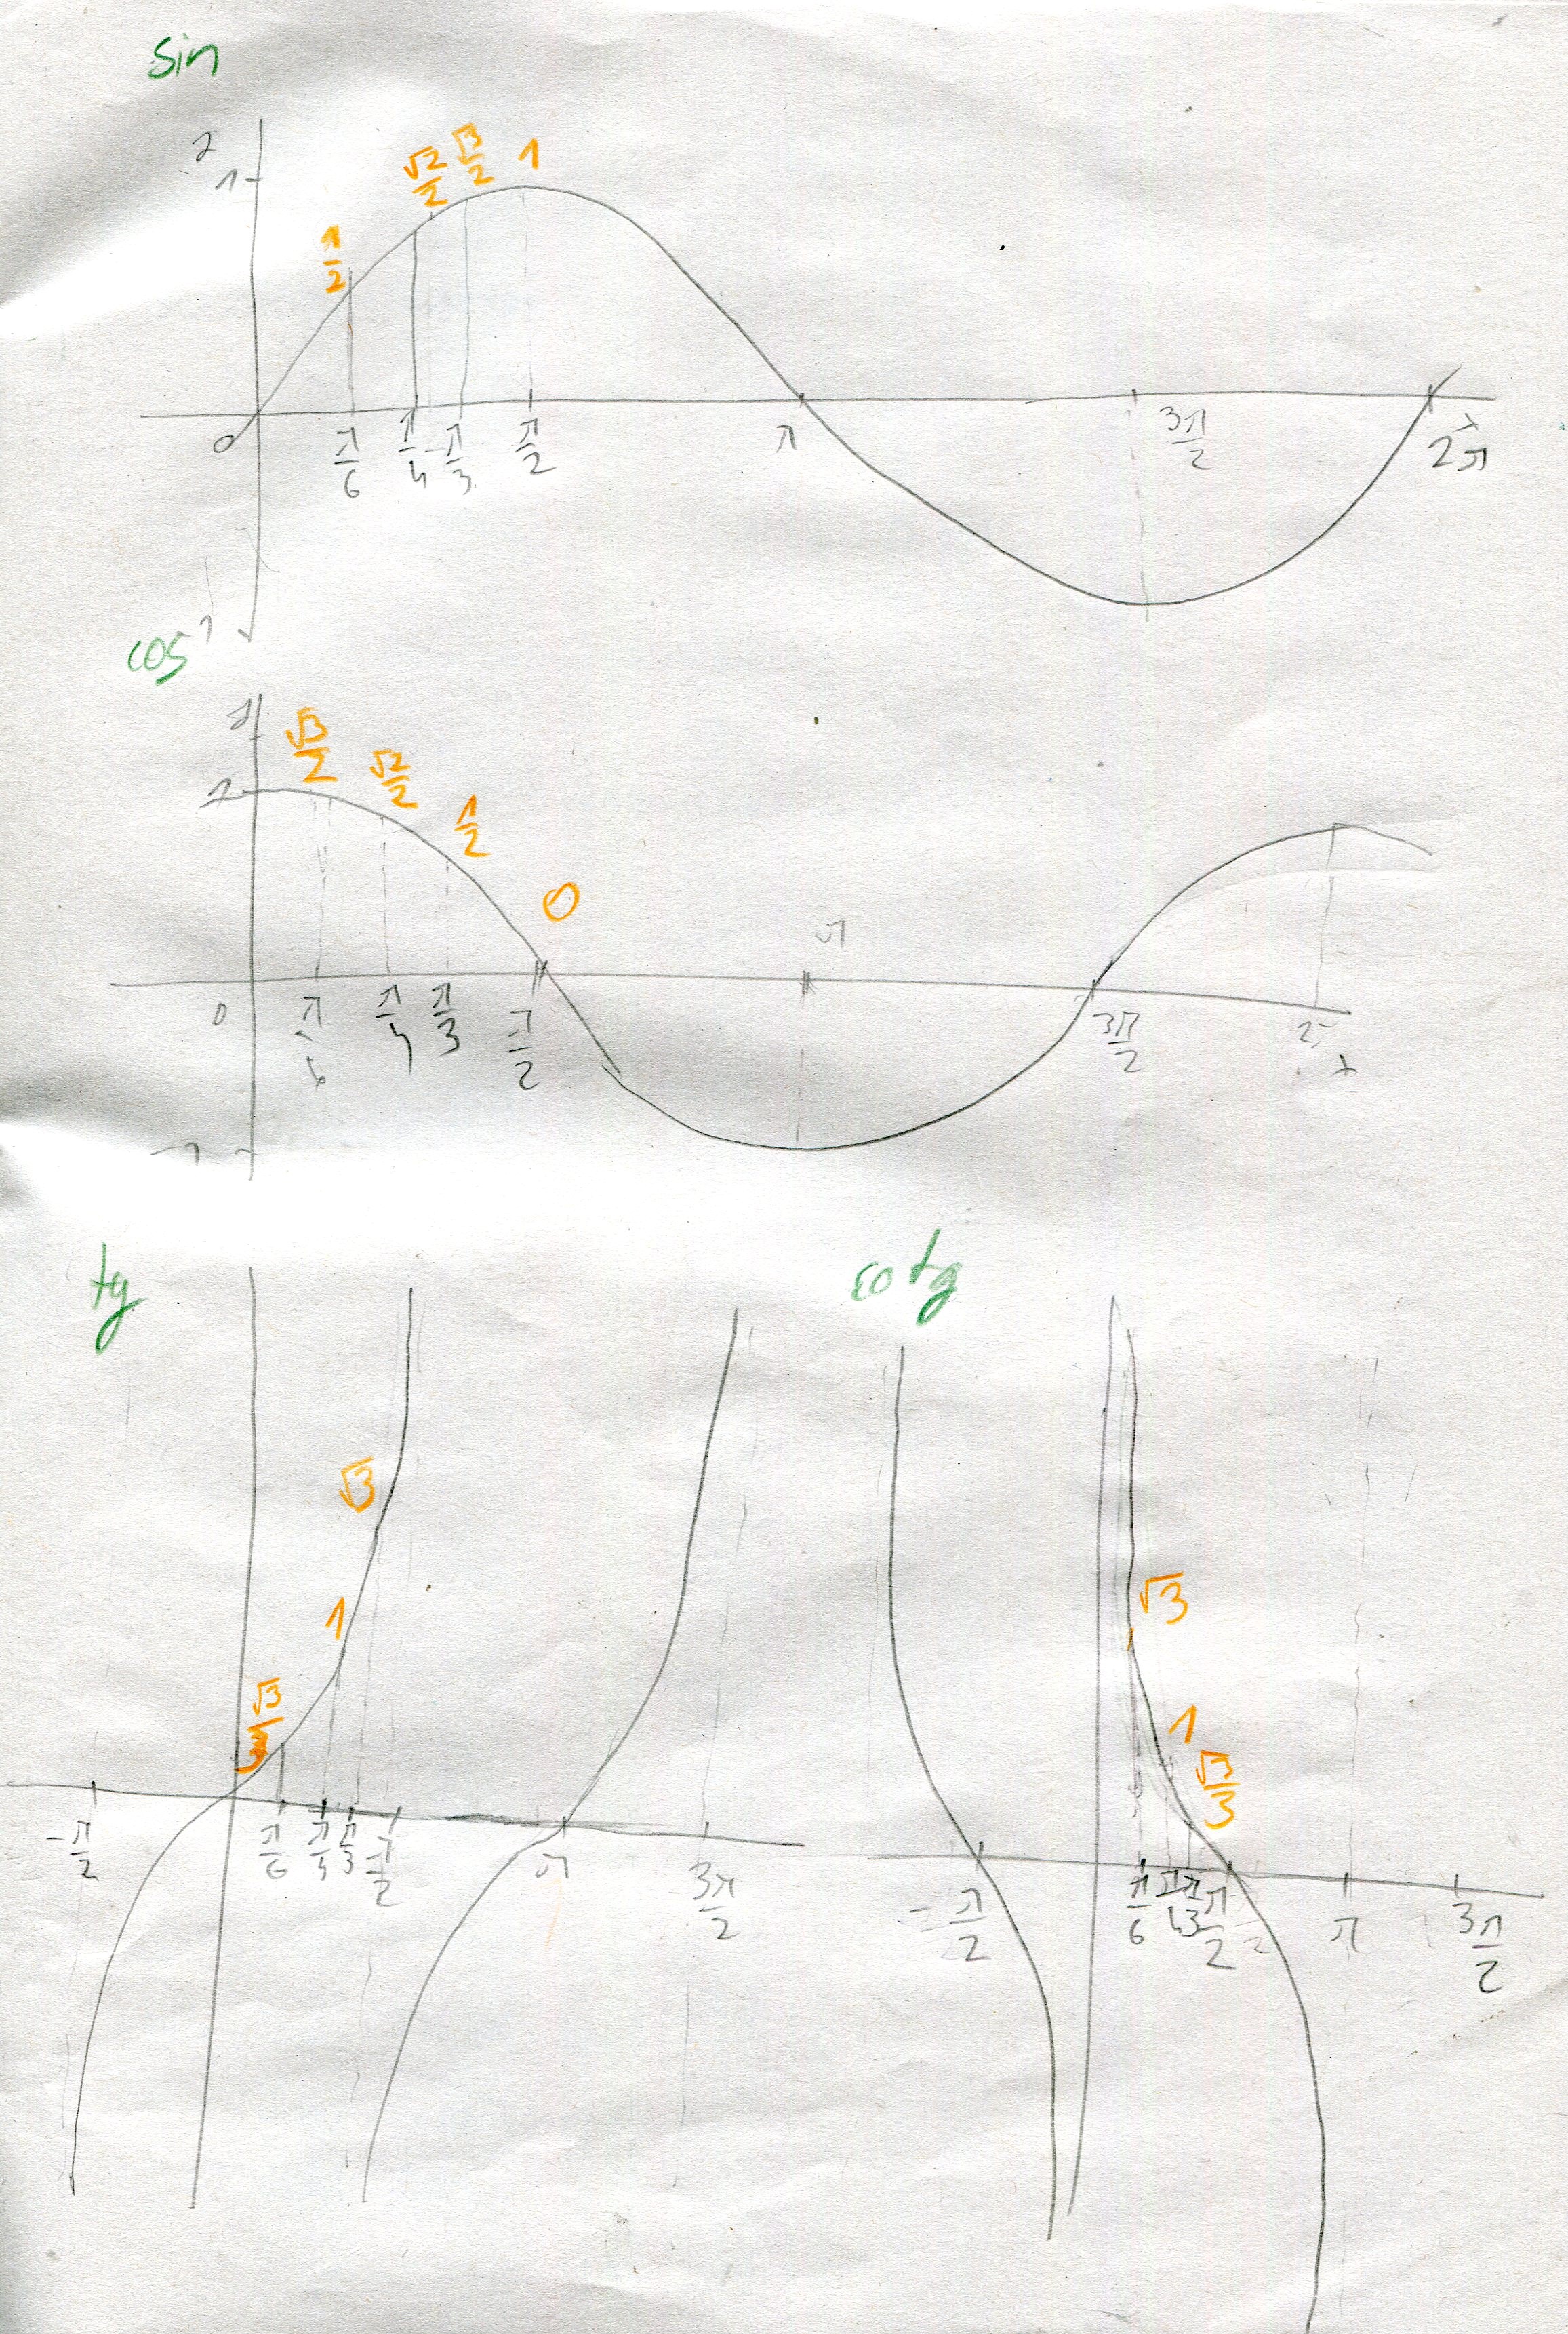 sin
1
1/2 √2/2 √3/2 1
0 π/6 π/4 π/3 π/2 π 3π/2 2π
cos
1
√3/2 √2/2 1/2 0
π
0 π/6 π/4 π/3 π/2 3π/2
-1
tg
√3
1
√3
-π/2 π/6 π/4 π/3 π/2 π 3π/2
cotg
√3
1
√3/3
-π/2 π/6 π/4 π/3 π/2 π 3π/2